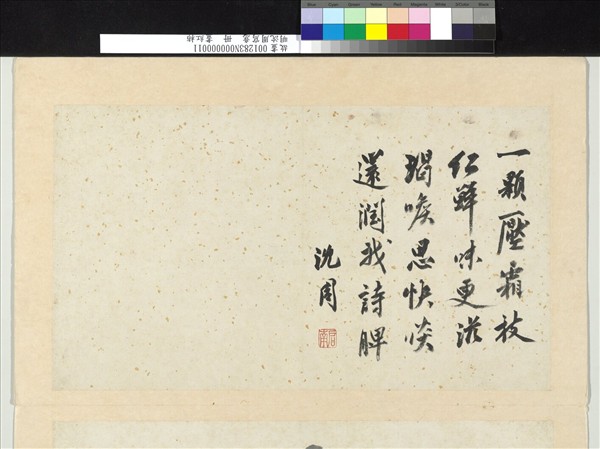 Blue Cyan Green Yellow Red Magenta White 3/Color Black
故畫001283N000000011
明沈周寫意 冊 畫紅柿
一顆壓霜枝
紅鮮味更滋
渴喉思快啖
還潤我詩脾
沈周
啟南